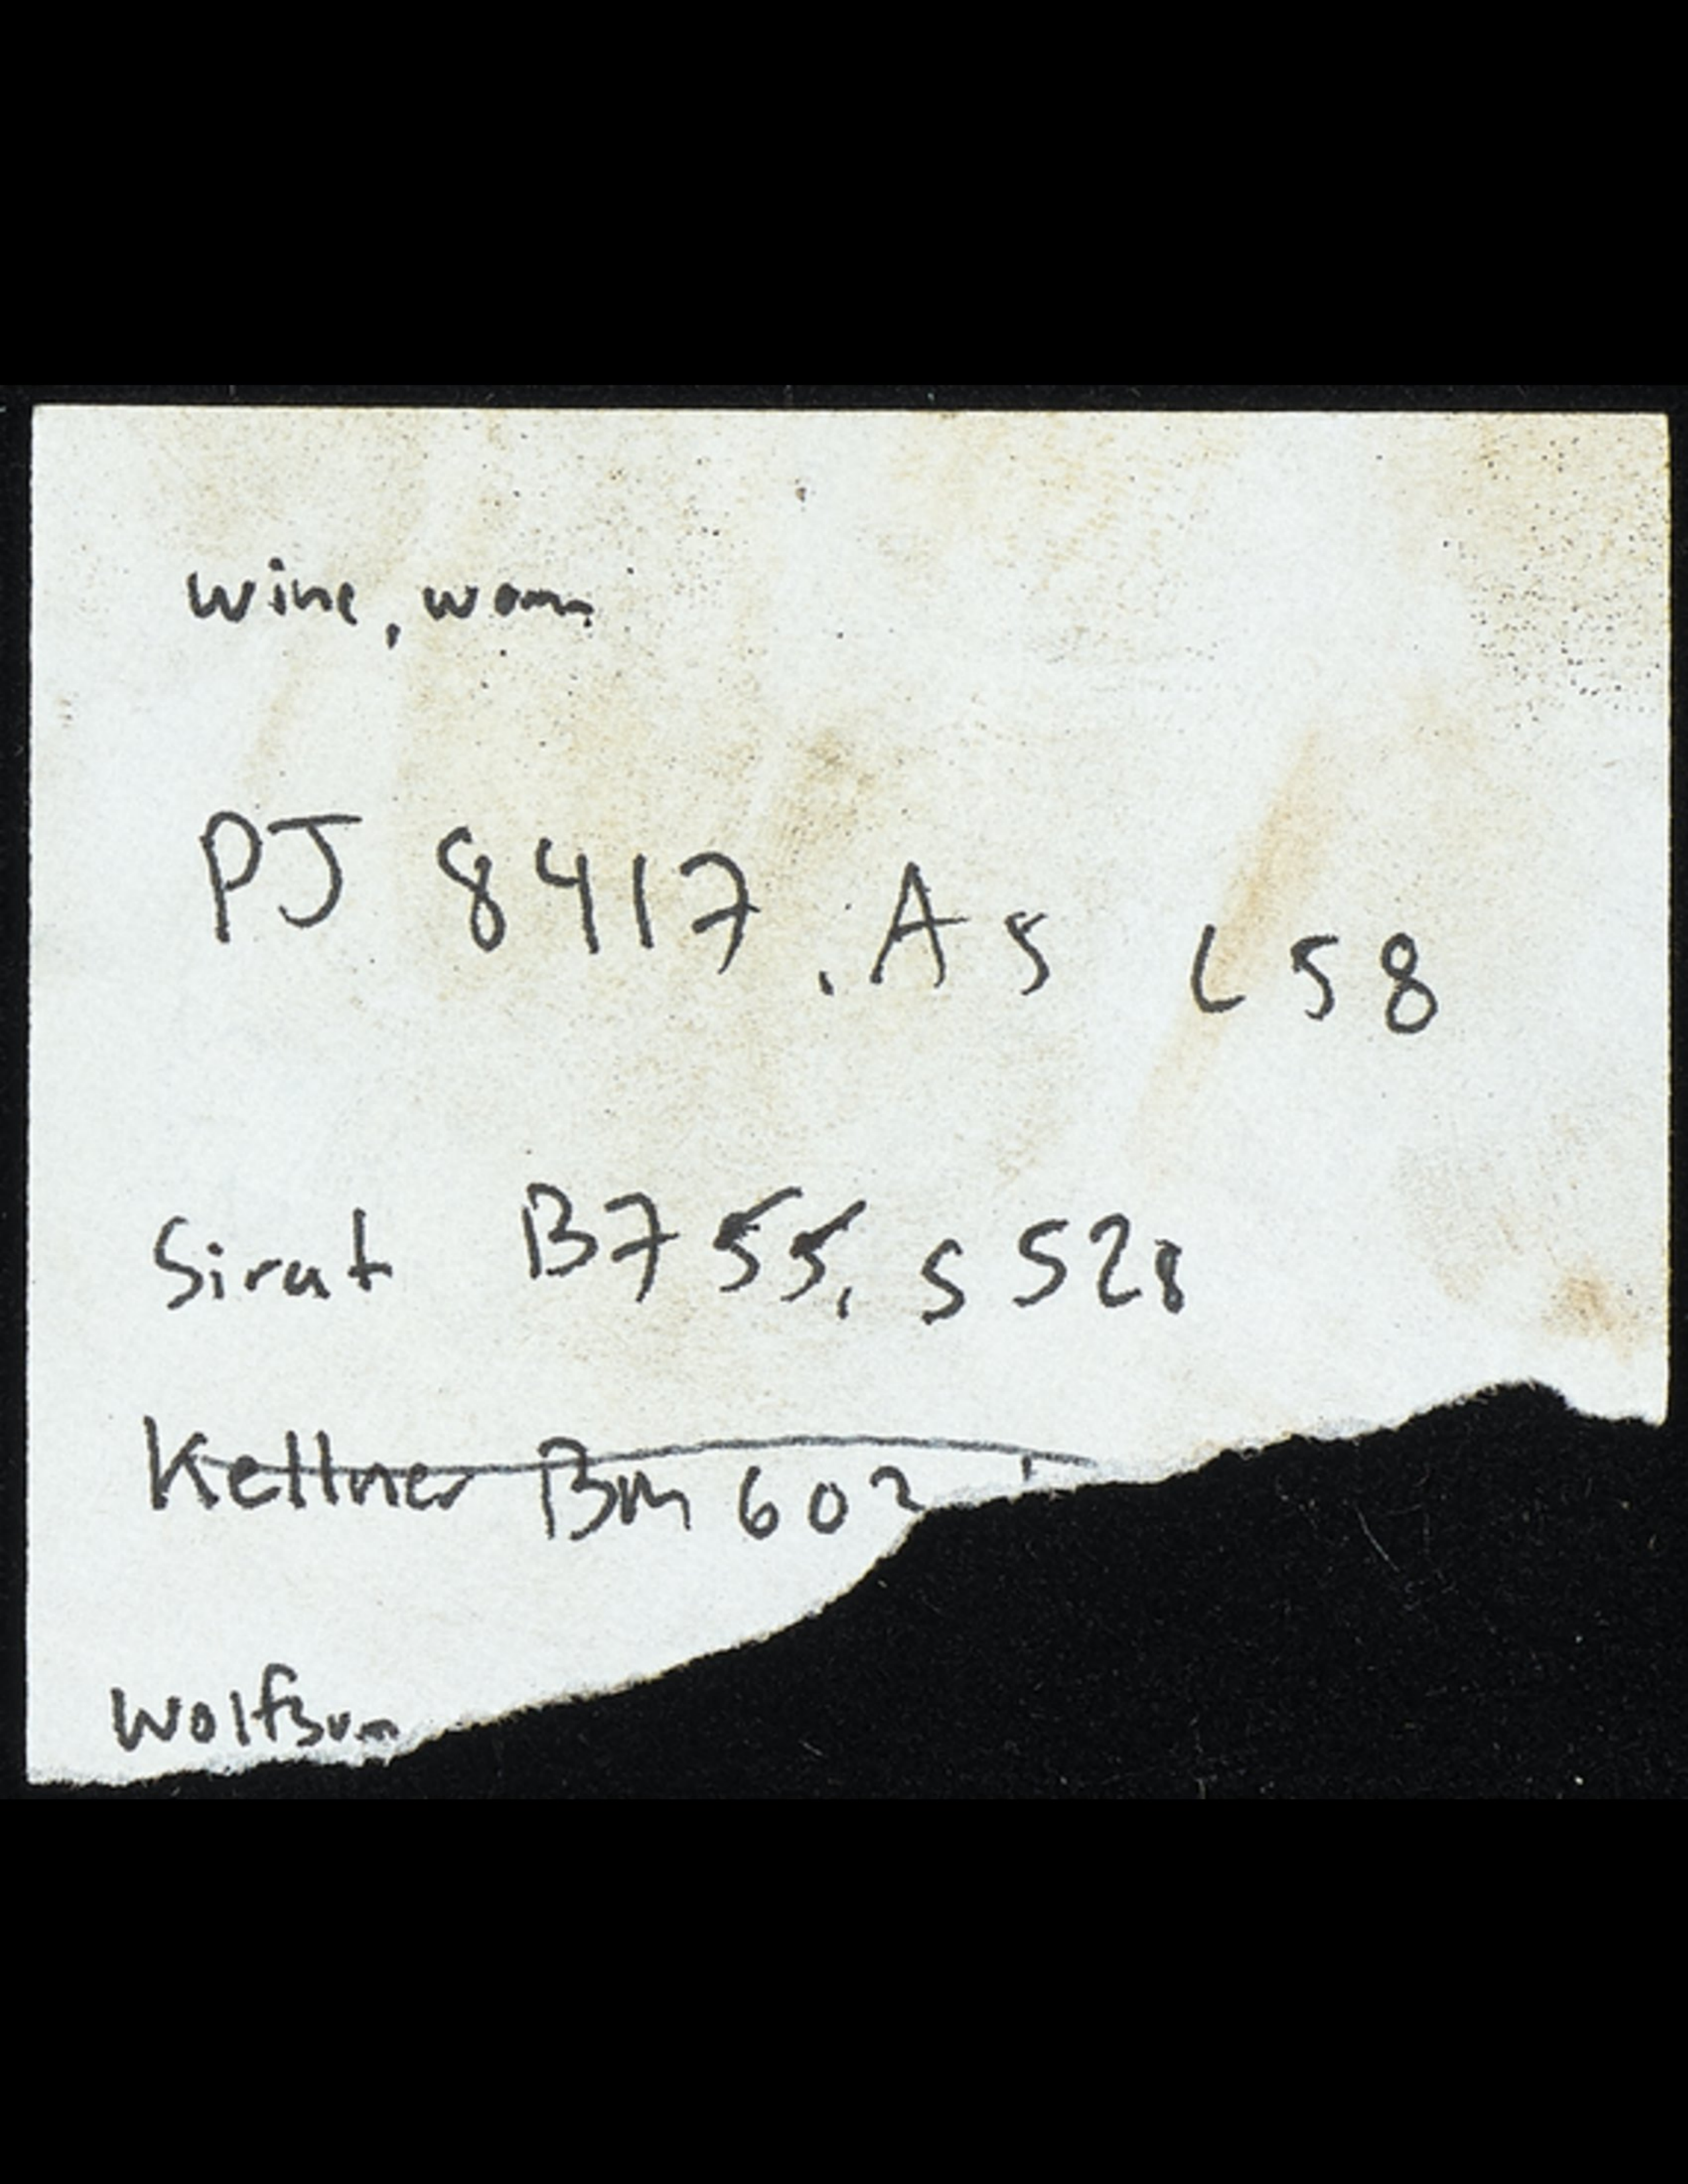 wine, wom
PJ 8417 .A5 L58
Sirat B755. S528
Kellner Bm 602
Wolfson